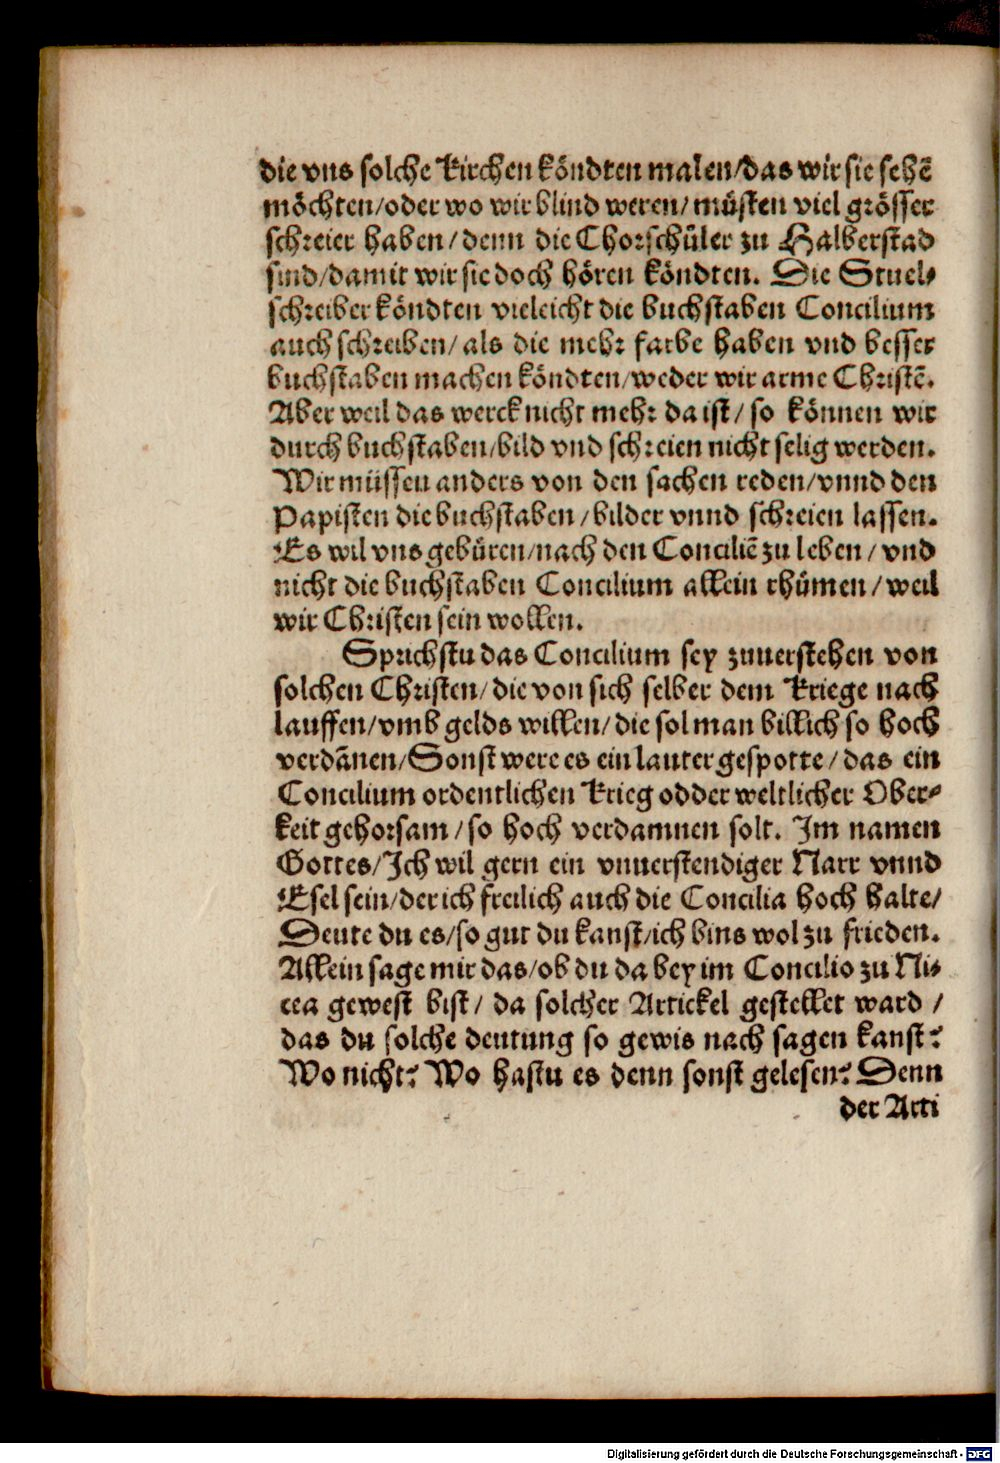 die vns solche Kirchen köndten malen/das wir sie sehē
möchten/oder wo wir blind weren/müsten viel grösser
schreier haben/denn die Chorschüler zu Halberstad
sind/damit wir sie doch hören köndten. Die Stuel-
schreiber köndten vieleicht die buchstaben Concilium
auch schreiben/als die mehr farbe haben vnd besser
buchstaben machen köndten/weder wir arme Christē.
Aber weil das werck nicht mehr da ist/so können wir
durch buchstaben/bild vnd schreien nicht selig werden.
Wir müssen anders von den sachen reden/vnnd den
Papisten die buchstaben/bilder vnnd schreien lassen.
Es wil vns gebüren/nach den Conciliē zu leben/vnd
nicht die buchstaben Concilium allein rhümen/weil
wir Christen sein wollen.
Sprichstu das Concilium sey zuuerstehen von
solchen Christen/die von sich selber dem Kriege nach
lauffen/vmb gelds willen/die sol man billich so hoch
verdānen/Sonst were es ein lauter gespotte/das ein
Concilium ordentlichen Krieg odder weltlicher Ober-
keit gehorsam/so hoch verdamnen solt. Im namen
Gottes/Ich wil gern ein vnuerstendiger Narr vnnd
Esel sein/der ich freilich auch die Concilia hoch halte/
Deute du es/so gut du kanst/ich bins wol zu frieden.
Allein sage mir das/ob du da bey im Concilio zu Ni-
cea gewest bist/da solcher Artickel gestellet ward/
das du solche deutung so gewis nach sagen kanst?
Wo nicht? Wo hastu es denn sonst gelesen? Denn
der Arti
Digitalisierung gefördert durch die Deutsche Forschungsgemeinschaft - DFG